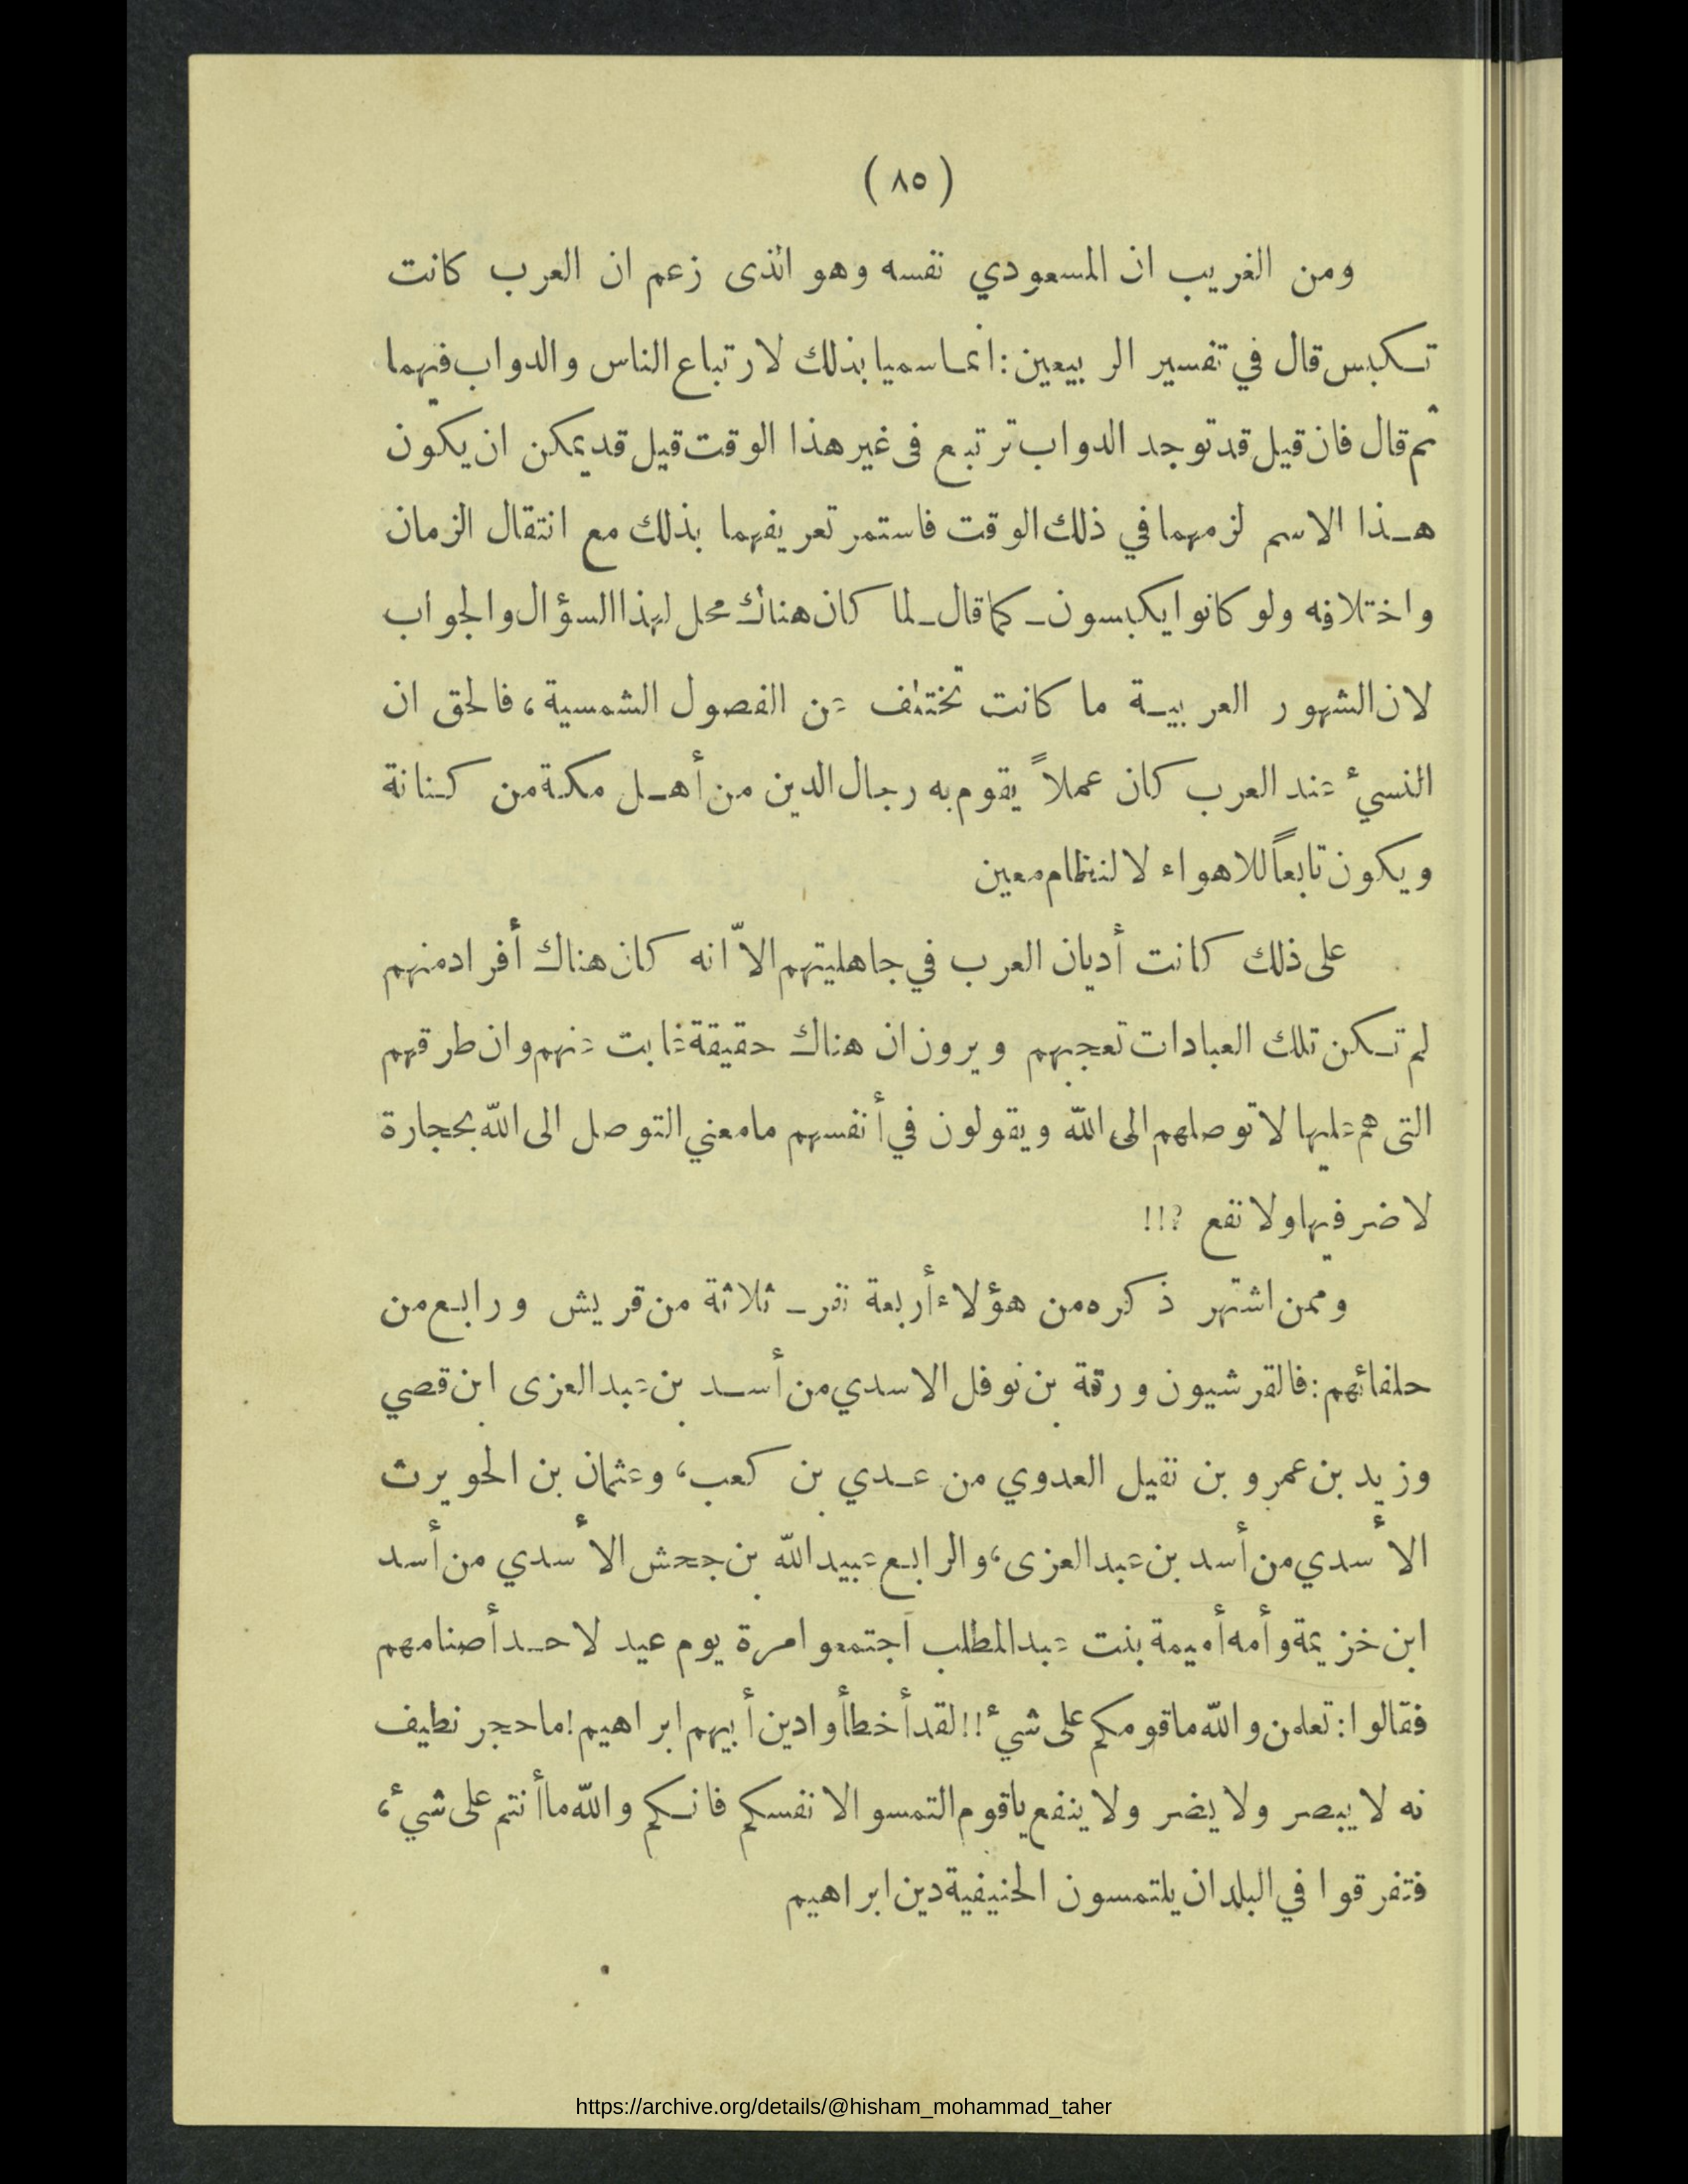 ( ٨٥ )
ومن الغريب ان المسعودي نفسه وهو الذى زعم ان العرب كانت
تكبس قال في تفسير الربيعين : انما سميا بذلك لارتباع الناس والدواب فيهما
ثم قال فان قيل قد توجد الدواب ترتبع فى غير هذا الوقت قيل قد يمكن ان يكون
هذا الاسم لزمهما في ذلك الوقت فاستمر تعريفهما بذلك مع انتقال الزمان
واختلافه ولو كانوا يكبسون ـ كما قال ـ لما كان هناك محل لهذا السؤال والجواب
لان الشهور العربية ما كانت تختلف عن الفصول الشمسية ، فالحق ان
النسيء عند العرب كان عملاً يقوم به رجال الدين من أهل مكة من كنانة
ويكون تابعاً للاهواء لا لنظام معين
على ذلك كانت أديان العرب في جاهليتهم الاّ انه كان هناك أفراد منهم
لم تكن تلك العبادات تعجبهم ويرون ان هناك حقيقة غابت عنهم وان طرقهم
التى هم عليها لا توصلهم الى الله ويقولون في أنفسهم ما معني التوصل الى الله بحجارة
لا ضر فيها ولا نفع ؟!!
وممن اشتهر ذكره من هؤلاء أربعة نفر ـ ثلاثة من قريش ورابع من
حلفائهم : فالقرشيون ورقة بن نوفل الاسدي من أسد بن عبد العزى ابن قصي
وزيد بن عمرو بن نفيل العدوي من عدي بن كعب ، وعثمان بن الحويرث
الأسدي من أسد بن عبد العزى ، والرابع عبيد الله بن جحش الأسدي من أسد
ابن خزيمة وأمه أميمة بنت عبد المطلب اجتمعوا مرة يوم عيد لاحد أصنامهم
فقالوا : تعلمن والله ما قومكم على شيء !! لقد أخطأوا دين أبيهم ابراهيم ! ما حجر نطيف
به لا يبصر ولا يضر ولا ينفع يا قوم التمسوا لانفسكم فانكم والله ما أنتم على شيء ،
فتفرقوا في البلدان يلتمسون الحنيفية دين ابراهيم
https://archive.org/details/@hisham_mohammad_taher